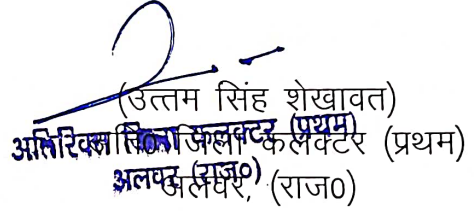 (उत्तम सिंह शेखावत)
अति० जिला कलेक्टर (प्रथम)
अलवर, (राज०)
अतिरिक्त जिला कलक्टर (प्रथम)
अलवर (राज०)